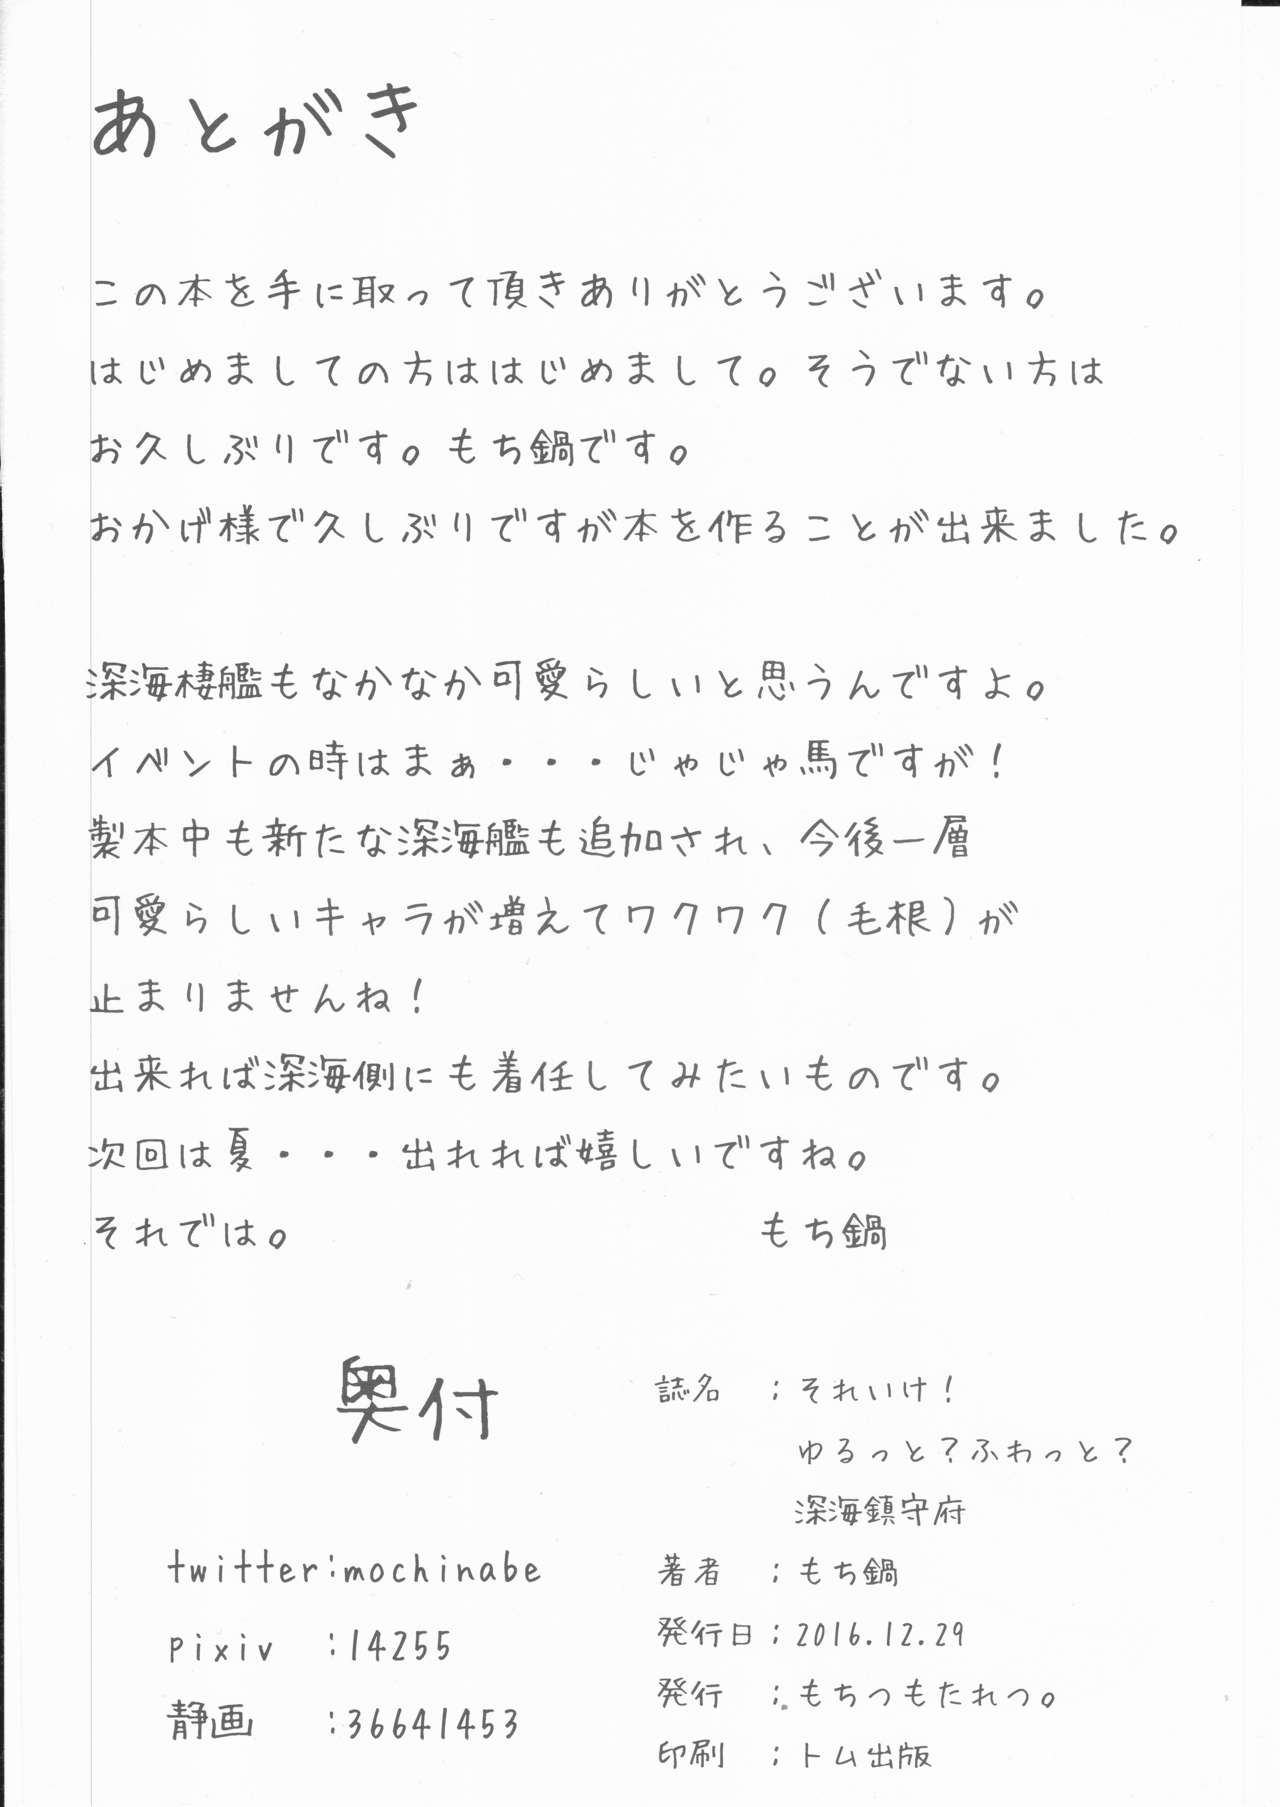 あとがき
この本を手に取って頂きありがとうございます。
はじめましての方ははじめまして。そうでない方は
お久しぶりです。もち鍋です。
おかげ様で久しぶりですが本を作ることが出来ました。
深海棲艦もなかなか可愛らしいと思うんですよ。
イベントの時はまぁ・・・じゃじゃ馬ですが！
製本中も新たな深海艦も追加され、今後一層
可愛らしいキャラが増えてワクワク（毛根）が
止まりませんね！
出来れば深海側にも着任してみたいものです。
次回は夏・・・出れれば嬉しいですね。
それでは。 もち鍋
奥付
twitter:mochinabe
pixiv :14255
静画 :36641453
誌名 ：それいけ！
ゆるっと？ふわっと？
深海鎮守府
著者 ：もち鍋
発行日：2016.12.29
発行 ：もちつもたれつ。
印刷 ：トム出版